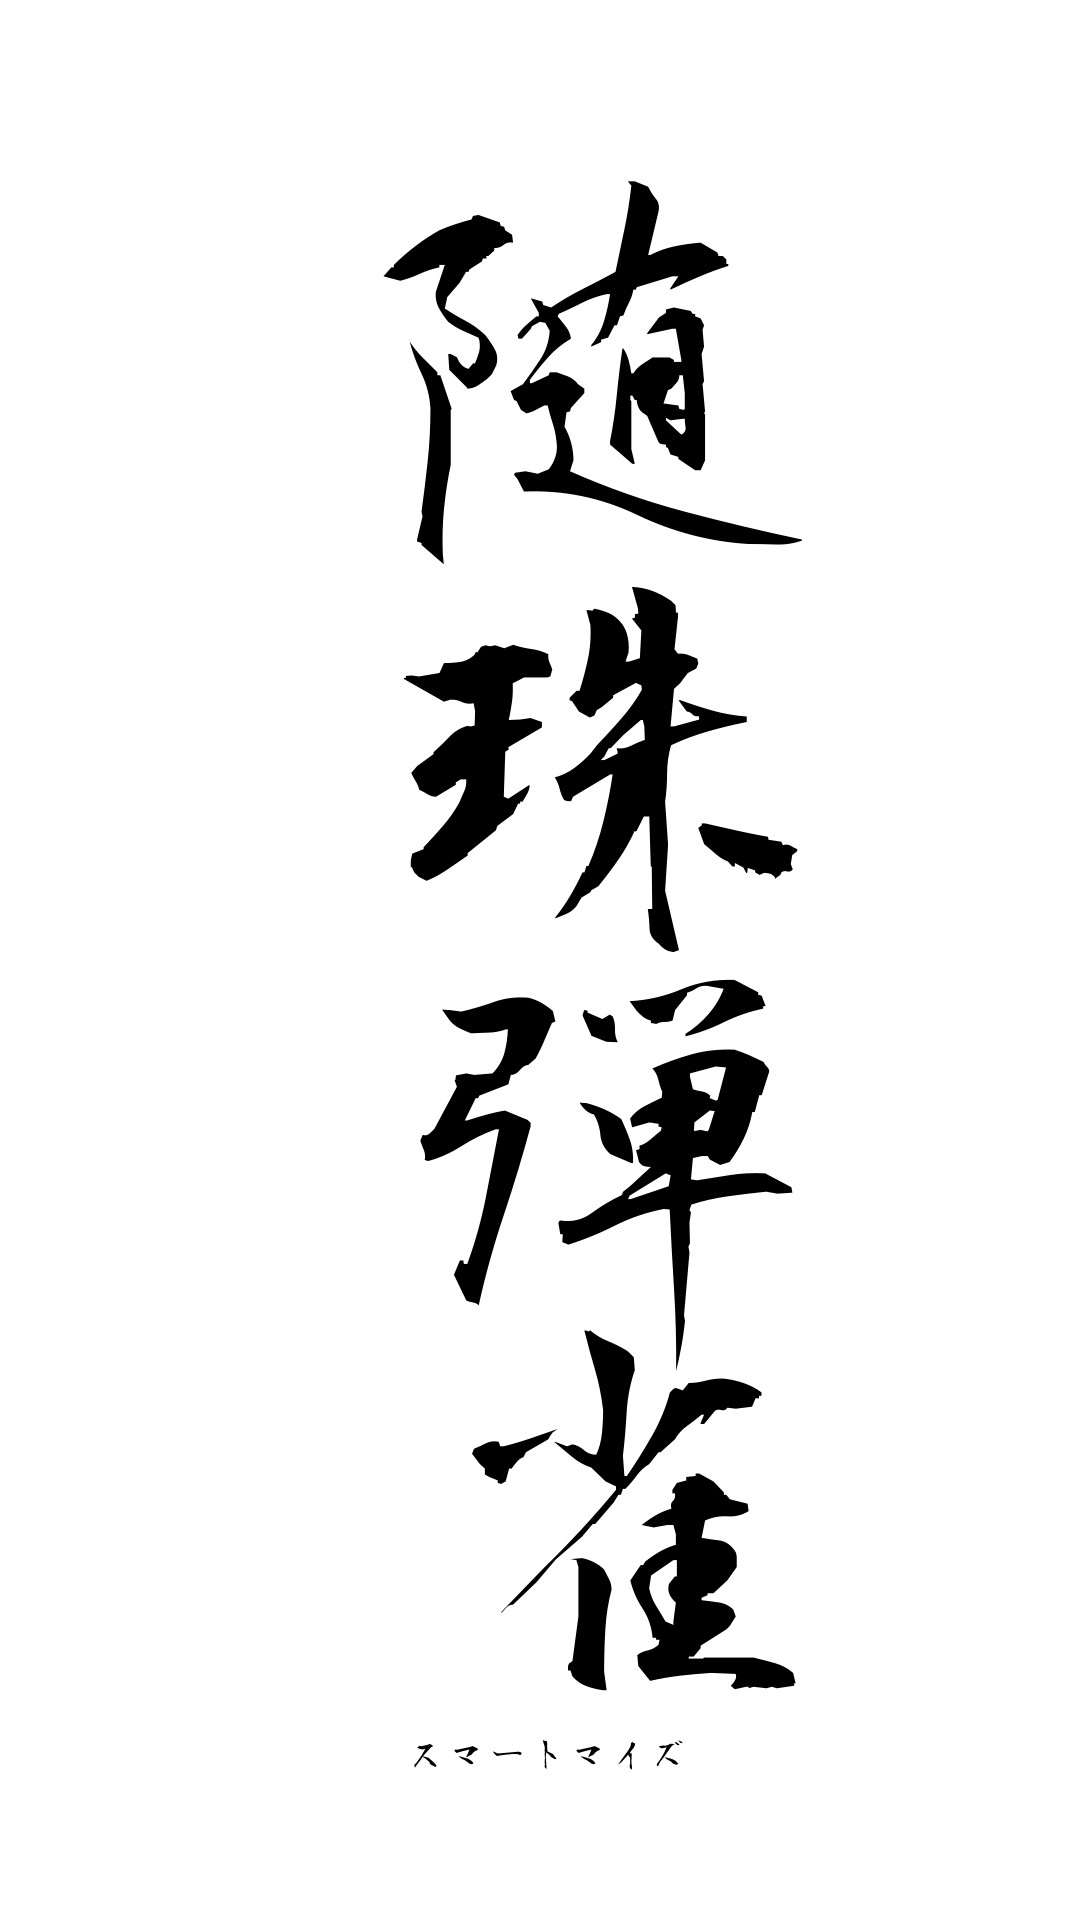 随珠弾雀
スマートマイズ